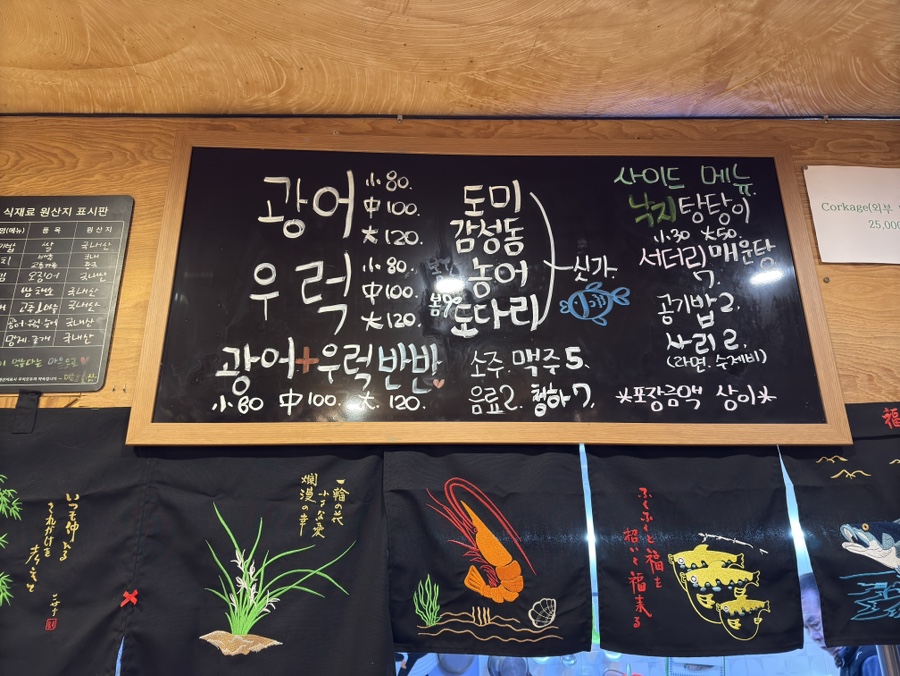 식재료 원산지 표시판
품목
원산지
쌀
국내산
오징어
국내산
국내산
국내산
국내산
조개
국내산
광어
小 80.
中 100.
大 120.
우럭
小 80.
中 100.
大 120.
광어+우럭 반반
小 80 中 100. 大. 120.
도미
감성돔
농어
도다리
싯가.
소주. 맥주 5.
음료 2. 청하 7.
사이드 메뉴.
낙지탕탕이
小 30 大 50.
서더리매운탕
공기밥 2.
사리 2.
(라면. 수제비)
*포장금액 상이*
Corkage(외부
25,000
いつも仲よく
考
一輪の花
小さな愛
爛漫の幸
ふくふくと福を
招いて福来る
福